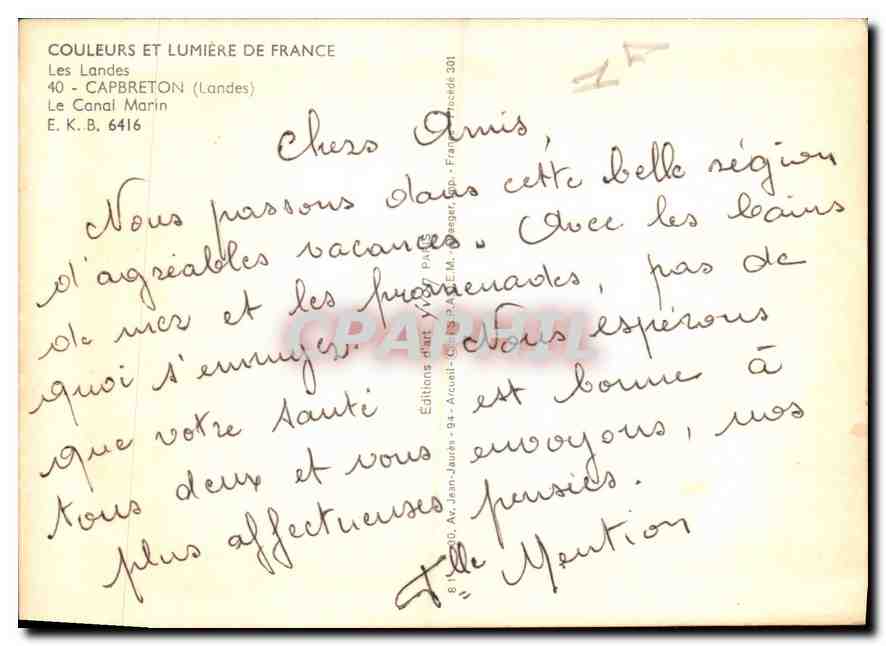 COULEURS ET LUMIÈRE DE FRANCE
Les Landes
40 - CAPBRETON (Landes)
Le Canal Marin
E. K. B. 6416
Chers Amis,
Nous passons dans cette belle région
d'agréables vacances. Avec les bains
de mer et les promenades, pas de
quoi s'ennuyer. Nous espérons
que votre santé est bonne à
tous deux et vous envoyons, nos
plus affectueuses pensées.
Flle Mention
Éditions d'art YVON PARIS
30, Av. Jean-Jaurès - 94 - Arcueil - Imp. - France - Procédé 301
CPAPHIL